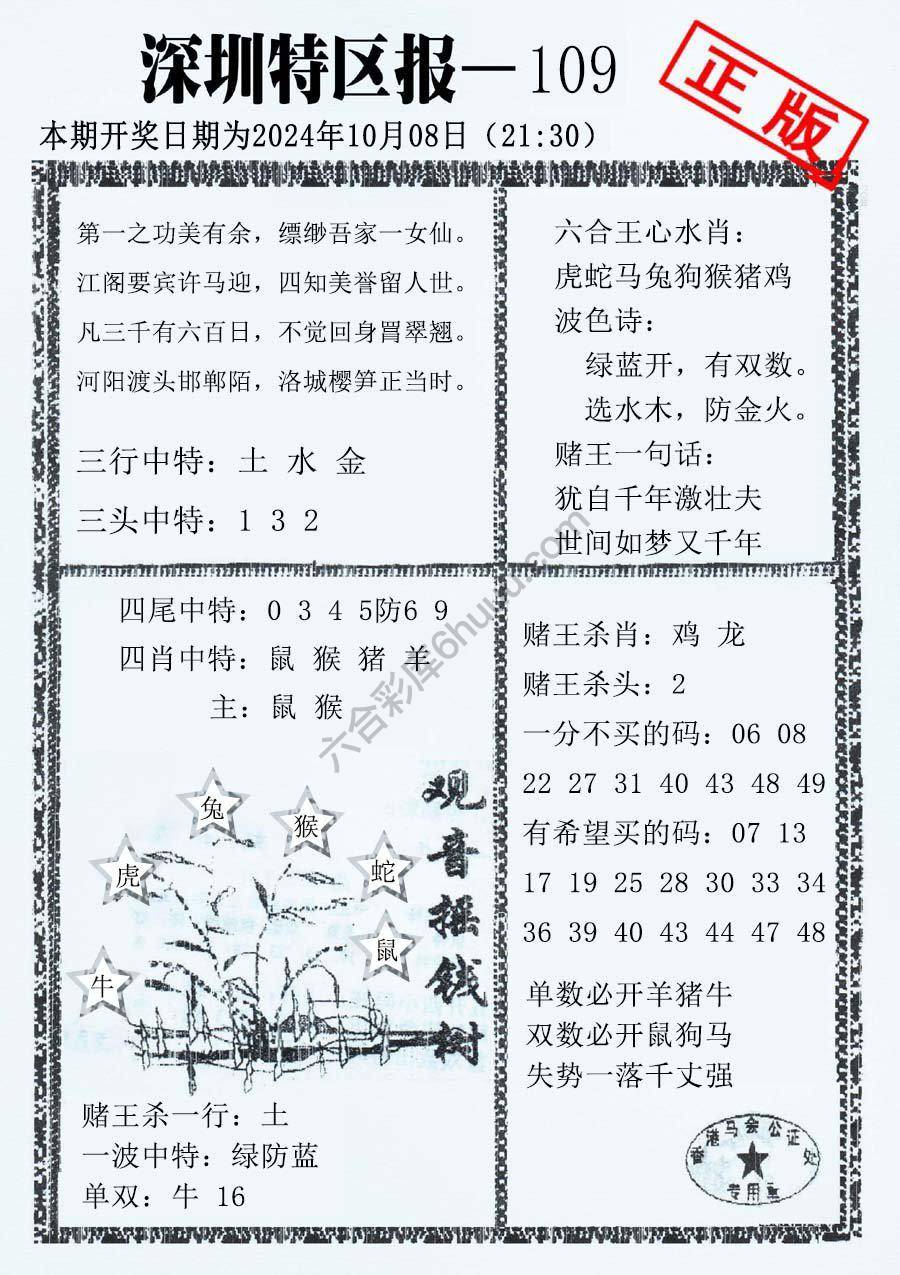 深圳特区报—109
正版
本期开奖日期为2024年10月08日（21:30）
第一之功美有余，缥缈吾家一女仙。
江阁要宾许马迎，四知美誉留人世。
凡三千有六百日，不觉回身罥翠翘。
河阳渡头邯郸陌，洛城樱笋正当时。
三行中特：土 水 金
三头中特：1 3 2
六合王心水肖：
虎蛇马兔狗猴猪鸡
波色诗：
绿蓝开，有双数。
选水木，防金火。
赌王一句话：
犹自千年激壮夫
世间如梦又千年
四尾中特：0 3 4 5防6 9
四肖中特：鼠 猴 猪 羊
主：鼠 猴
观音摇钱树
兔
猴
虎
蛇
鼠
牛
赌王杀一行：土
一波中特：绿防蓝
单双：牛 16
赌王杀肖：鸡 龙
赌王杀头：2
一分不买的码：06 08
22 27 31 40 43 48 49
有希望买的码：07 13
17 19 25 28 30 33 34
36 39 40 43 44 47 48
单数必开羊猪牛
双数必开鼠狗马
失势一落千丈强
香港马会公证处
专用章
六合彩库6huuu.com